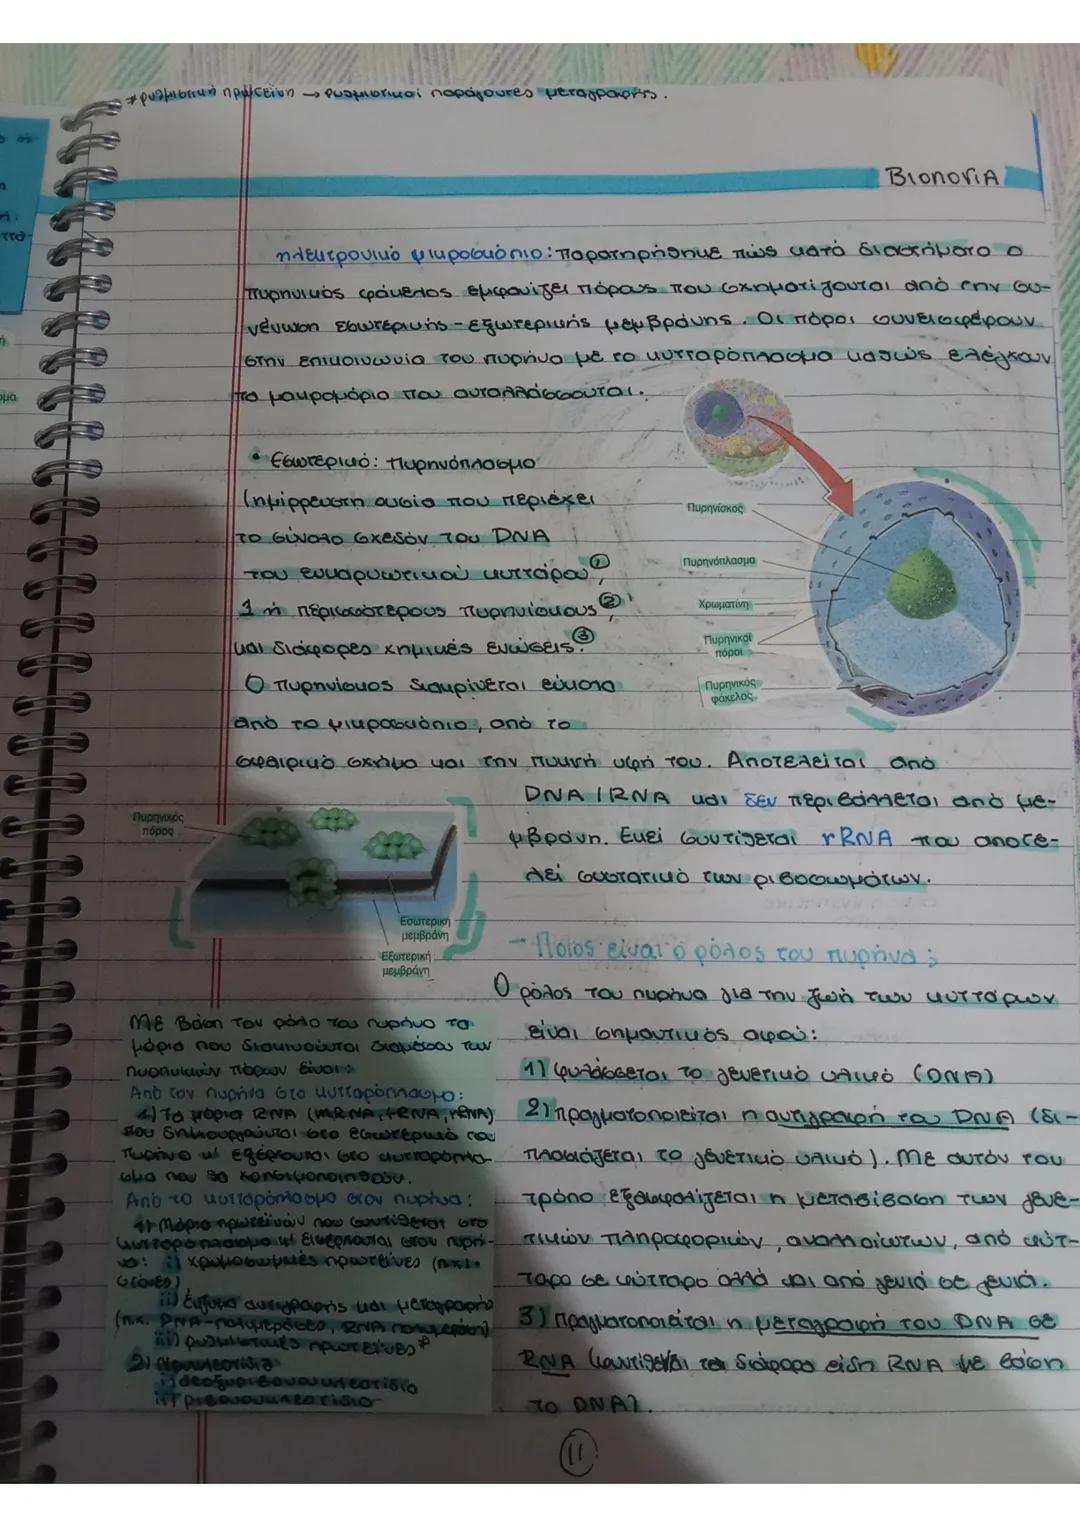 *ρυθμιστική πρωτεΐνη → ρυθμιστικοί παράγοντες μεταγραφής.
ΒΙΟΛΟΓΙΑ
ηλεκτρονικό μικροσκόπιο: παρατηρήθηκε πώς κατά διαστήματα ο
πυρηνικός φάκελος εμφανίζει πόρους που σχηματίζονται από την συ-
νένωση εσωτερικής - εξωτερικής μεμβράνης. Οι πόροι συνεισφέρουν
στην επικοινωνία του πυρήνα με το κυτταρόπλασμα καθώς ελέγχουν
τα μακρομόρια που ανταλλάσσονται.
• Εσωτερικό: πυρηνόπλασμα
(ημίρρευστη ουσία που περιέχει
το σύνολο σχεδόν του DNA
του ευκαρυωτικού κυττάρου ①,
1 ή περισσότερους πυρηνίσκους ②,
και διάφορες χημικές ενώσεις. ③
Ο πυρηνίσκος διακρίνεται εύκολα
από το μικροσκόπιο, από το
σφαιρικό σχήμα και την πυκνή υφή του. Αποτελείται από
DNA / RNA και δεν περιβάλλεται από με-
μβράνη. Εκεί συντίθεται rRNA που αποτε-
λεί συστατικό των ριβοσωμάτων.
Πυρηνίσκος
Πυρηνόπλασμα
Χρωματίνη
Πυρηνικοί
πόροι
Πυρηνικός
φάκελος
Πυρηνικός
πόρος
Εσωτερική
μεμβράνη
Εξωτερική
μεμβράνη
- Ποιος είναι ο ρόλος του πυρήνα;
Ο ρόλος του πυρήνα για την ζωή των κυττάρων
είναι σημαντικός αφού:
1) φυλάσσεται το γενετικό υλικό (DNA)
2) πραγματοποιείται η αντιγραφή του DNA (δι-
πλασιάζεται το γενετικό υλικό). Με αυτόν τον
τρόπο εξασφαλίζεται η μεταβίβαση των γενε-
τικών πληροφοριών, αναλλοίωτων, από κύτ-
ταρο σε κύτταρο αλλά και από γενιά σε γενιά.
3) πραγματοποιείται η μεταγραφή του DNA σε
RNA (συντίθενται τα διάφορα είδη RNA με βάση
το DNA).
Με βάση τον ρόλο του πυρήνα τα
μόρια που διακινούνται διαμέσου των
πυρηνικών πόρων είναι:
Από τον πυρήνα στο κυτταρόπλασμα:
1) Τα μόρια RNA (mRNA, tRNA, rRNA)
που δημιουργούνται στο εσωτερικό του
πυρήνα κι εξέρχονται στο κυτταρόπλα-
σμα που θα χρησιμοποιηθούν.
Από το κυτταρόπλασμα στον πυρήνα:
1) Μόρια πρωτεϊνών που συντίθεται στο
κυτταρόπλασμα κι εισέρχονται στον πυρή-
να: i) χρωμοσωμικές πρωτεΐνες (π.χ.
ιστόνες)
ii) ένζυμα αντιγραφής και μεταγραφής
(π.χ. DNA-πολυμεράσες, RNA πολυμεράση)
iii) ρυθμιστικές πρωτεΐνες*
2) Νουκλεοτίδια
i) δεοξυριβονουκλεοτίδια
ii) ριβονουκλεοτίδια
11